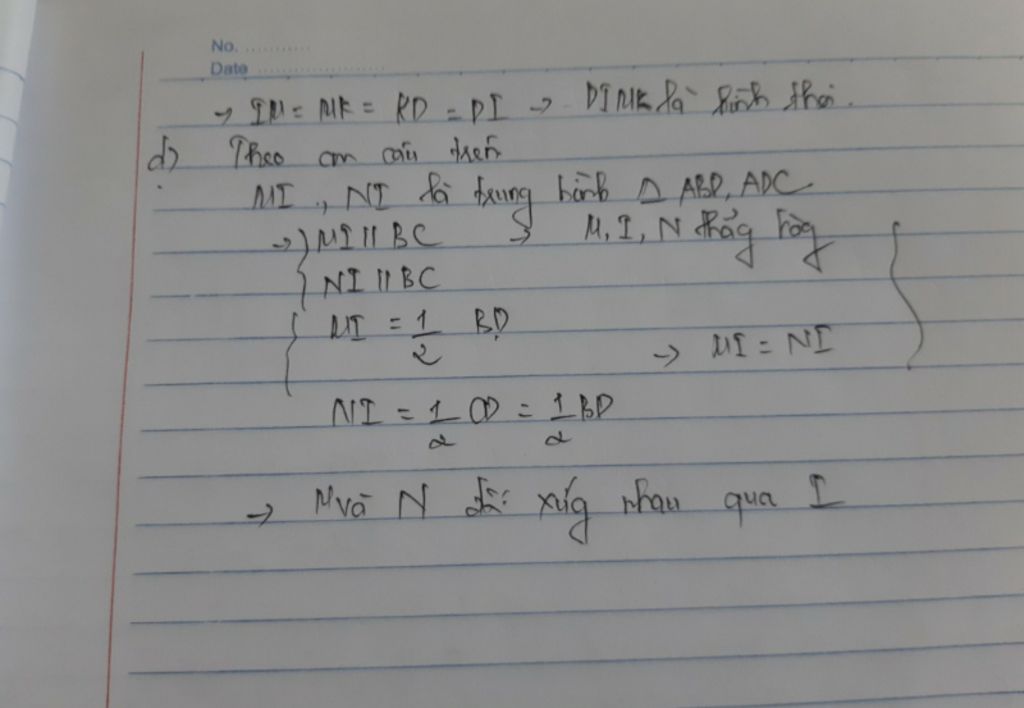 No. ............
Date ......................
→ IM = MK = KD = DI → DIMK là hình thoi.
d) Theo cm câu trên
MI, NI là trung bình Δ ABD, ADC
→ } MI // BC → M, I, N thẳng hàng
{ NI // BC
{ MI = 1/2 BD
→ MI = NI
NI = 1/2 CD = 1/2 BD
→ M và N đối xứng nhau qua I